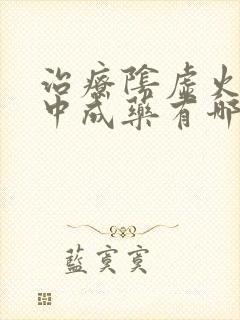 治療陰虛火
中成藥有哪
藍寞寞